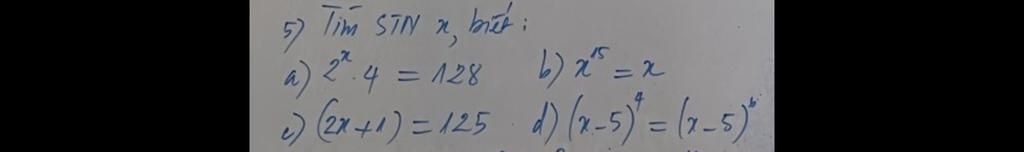 5) Tìm STN x, biết:
a) 2^x . 4 = 128 b) x^15 = x
c) (2x+1) = 125 d) (x-5)^4 = (x-5)^6